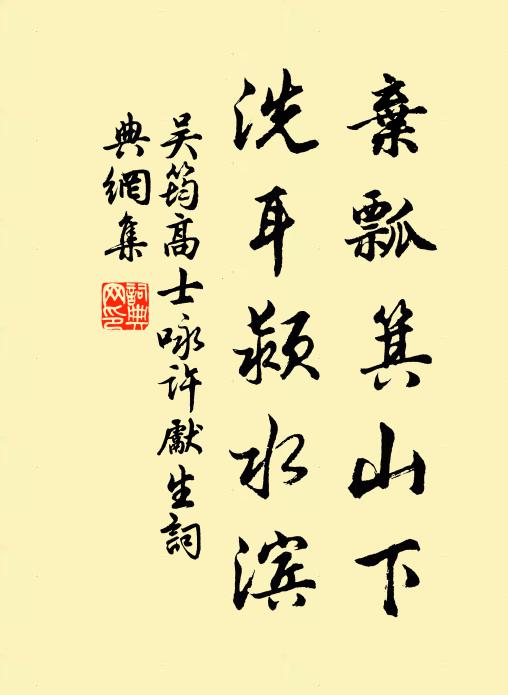 棄瓢箕山下
洗耳颍水滨
吴筠高士咏许獻生詞
典網集
詞典网印